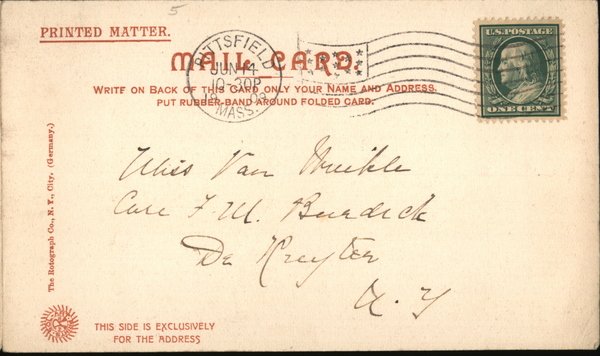 5
PRINTED MATTER.
MAIL CARD.
WRITE ON BACK OF THIS CARD ONLY YOUR NAME AND ADDRESS.
PUT RUBBER-BAND AROUND FOLDED CARD.
PITTSFIELD
JUN 14
10-30P
MASS.
U.S. POSTAGE
ONE CENT
Miss Van
Care F. M. Burdick
De Ruyter
N. Y
The Rotograph Co., N. Y., City. (Germany.)
THIS SIDE IS EXCLUSIVELY
FOR THE ADDRESS